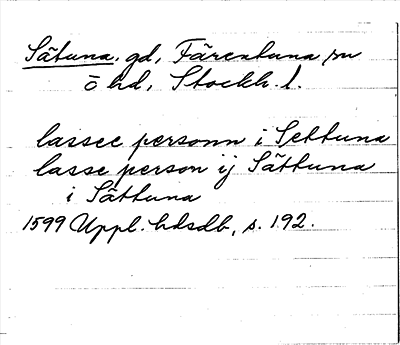 Sätuna, gd, Färentuna sn
ö hd, Stockh. l.
lassee personn i Settuna
lasse person ij Sättuna
i Sättuna
1599 Uppl. hdsdb, s. 192.